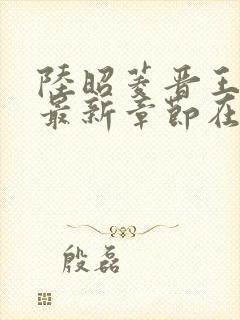 陸昭菱晋王
最新章節在
殷磊